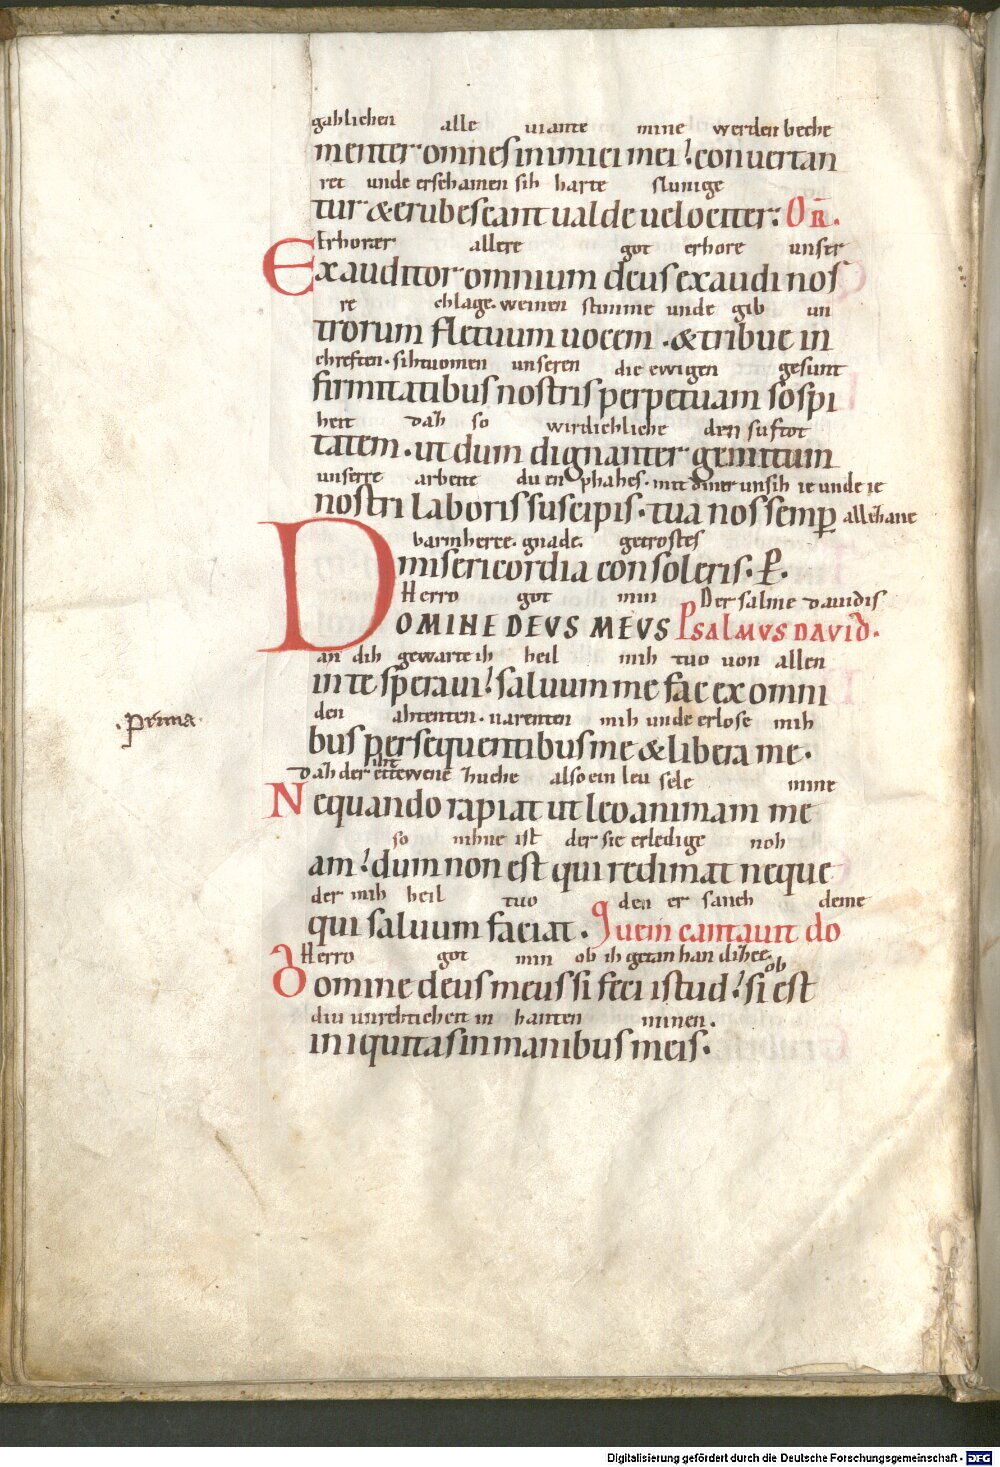 gahlichen alle uiante mine werden beche
menter omnes inimici mei! conuertan
ret unde erschamen sih harte slunige
tur & erubescant ualde uelociter: OR̄.
Erhorær allere got erhore unser
Exauditor omnium deus exaudi nos
re chlage. weinen stimme unde gib un
trorum fletuum uocem . & tribue in
chreften. sihtuomen unseren die ewigen gesunt
firmitatibus nostris perpetuam sospi
heit daz so wirdichliche den suftot
tatem. ut dum dignanter gemitum
unserre arbeite du enphahes. mit diner unsih ie unde ie
nostri laboris suscipis. tua nos semp̱ allezhane
barmherce. gnade. getrostes
misericordia consoleris. P̱.
Herro got min Der salme dauidis
DOMINE DEUS MEUS PSALMUS DAVID.
an dih gewarte ih heil mih tuo uon allen
in te speraui! saluum me fac ex omni
den ahtenten. uarenten mih unde erlose mih
bus persequentibus me & libera me.
.prima.
daz der ettewene zuche also ein leu sele mine
Nequando rapiat ut leo animam me
so nihne ist der sie erledige noh
am! dum non est qui redimat neque
der mih heil tuo den er sanch deme
qui saluum faciat. Quem cantauit do
Herro got min ob ih getan han dizhee ob
Domine deus meus si feci istud! si est
diu unrehticheit in hanten minen.
iniquitas in manibus meis.
Digitalisierung gefördert durch die Deutsche Forschungsgemeinschaft - DFG